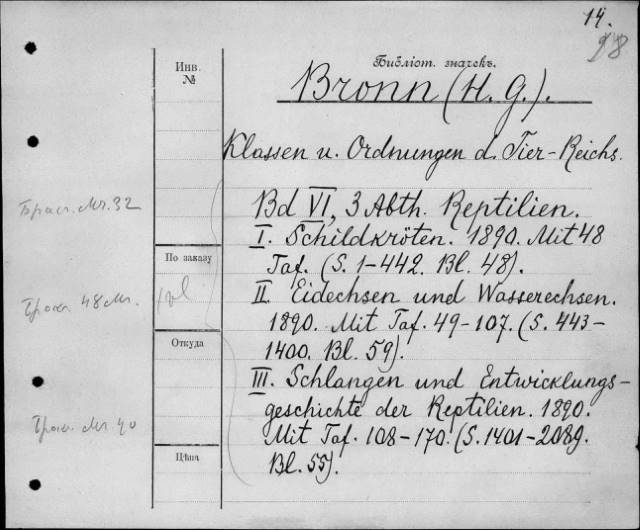 14.
28
Инв.
№
Библіот. значекъ.
Bronn (H. G.).
Klassen u. Ordnungen d. Tier-Reichs.
Bd VI, 3 Abth. Reptilien.
I. Schildkröten. 1890. Mit 48
Taf. (S. 1-442. Bl. 48).
По заказу
II. Eidechsen und Wasserechsen.
1890. Mit Taf. 49-107. (S. 443-
1400. Bl. 59).
Откуда
III. Schlangen und Entwicklungs-
geschichte der Reptilien. 1890.
Mit Taf. 108-170. (S. 1401-2089.
Bl. 55).
Цѣна
32
48
40